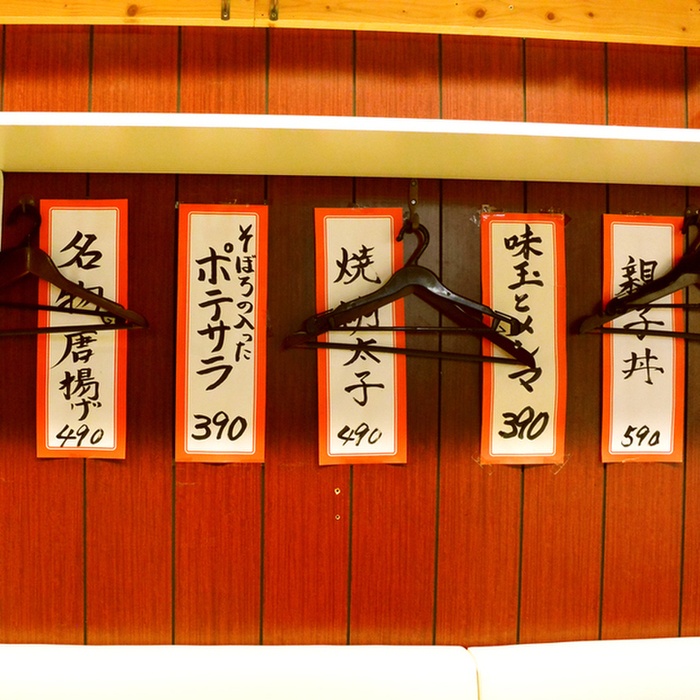 名物唐揚げ
490
そぼろの入った
ポテサラ
390
焼明太子
490
味玉とメンマ
390
親子丼
590